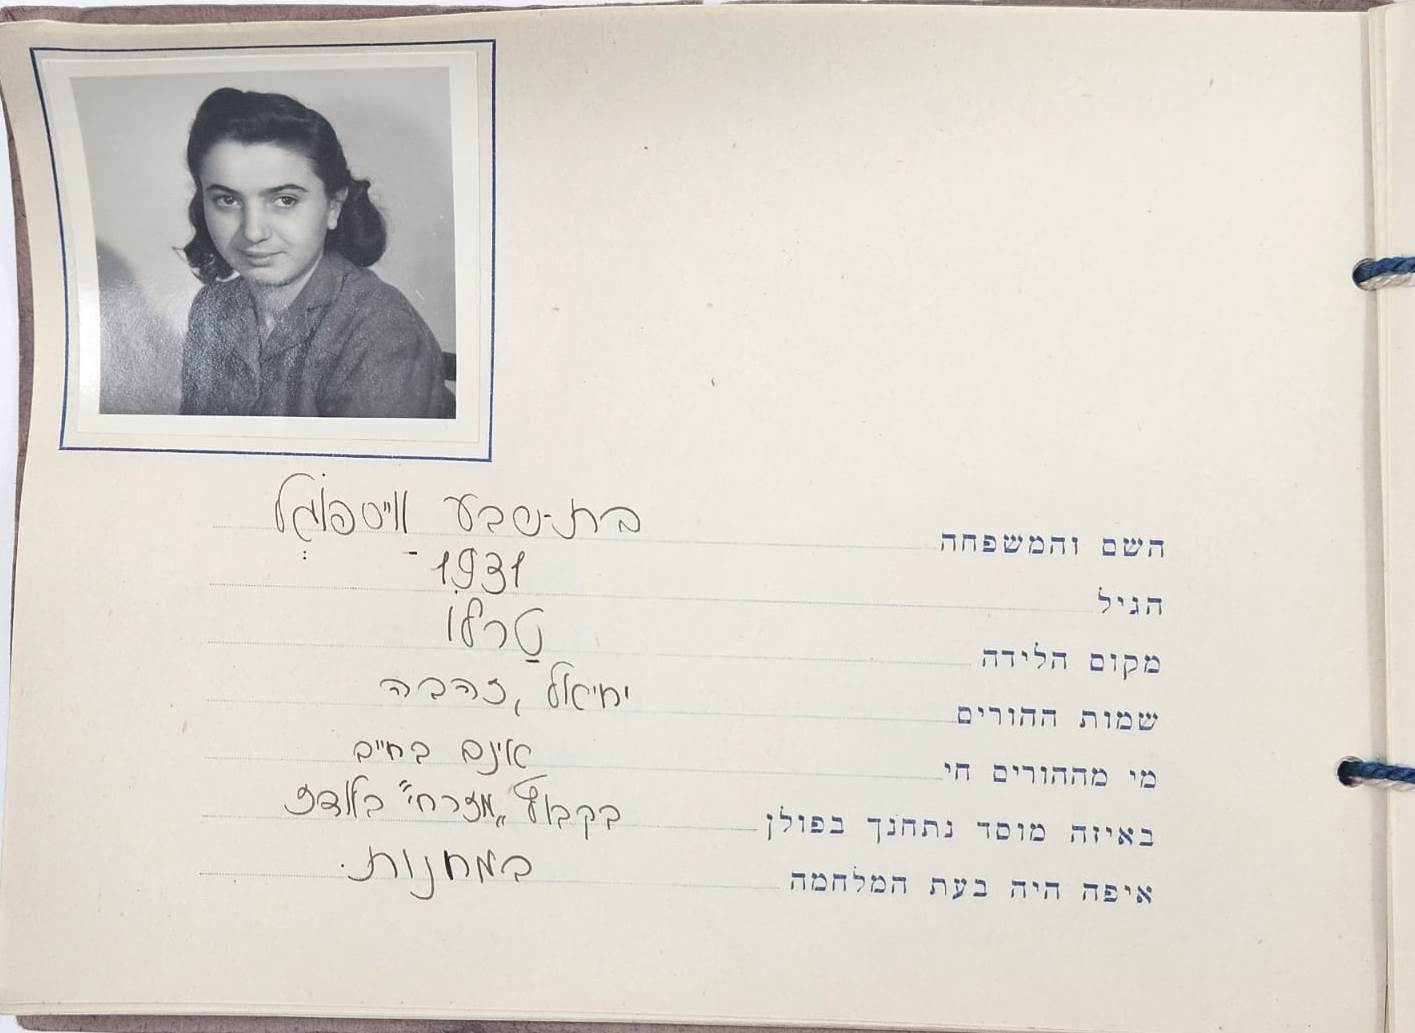 השם והמשפחה בת-שבע ווייספוֹגְל
הגיל 1931
מקום הלידה טַרלוֹ
שמות ההורים יחיאל, זהבה
מי מההורים חי אינם בחיים
באיזה מוסד נתחנך בפולן בקבוץ „מזרחי" בלודז
איפה היה בעת המלחמה במחנות.